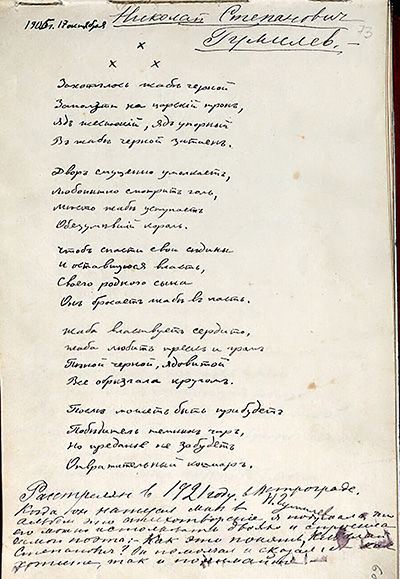 1905г. 17 октября
Николай Степанович
Гумилев.
73
х
х х
Захотелось жабѣ черной
Заползти на царскій тронъ,
Ядъ жестокій, ядъ упорный
Въ жабѣ черной затаенъ.
Дворъ смущенно умолкаетъ,
Любопытно смотритъ голь,
Мѣсто жабѣ уступаетъ
Обезумѣвшій король.
Чтобъ спасти свои сѣдины
И оставшуюся власть,
Своего родного сына
Онъ бросаетъ жабѣ въ пасть.
Жаба властвуетъ сердито,
Жаба любитъ треск и громъ
Пѣной черной, ядовитой
Все обрызгала кругомъ.
Послѣ можетъ быть прибудетъ
Побѣдитель темныхъ чаръ,
Но преданье не забудетъ
Отвратительный кошмаръ.
Расстрелян в 1921 году, в Петрограде.
Когда он написал мне в
альбом это стихотворение, я подумала,
его можно истолковать двояко и спросила
самого поэта: - Как это понять,
Степанович? Он помолчал и сказал:
хотите, так и понимайте